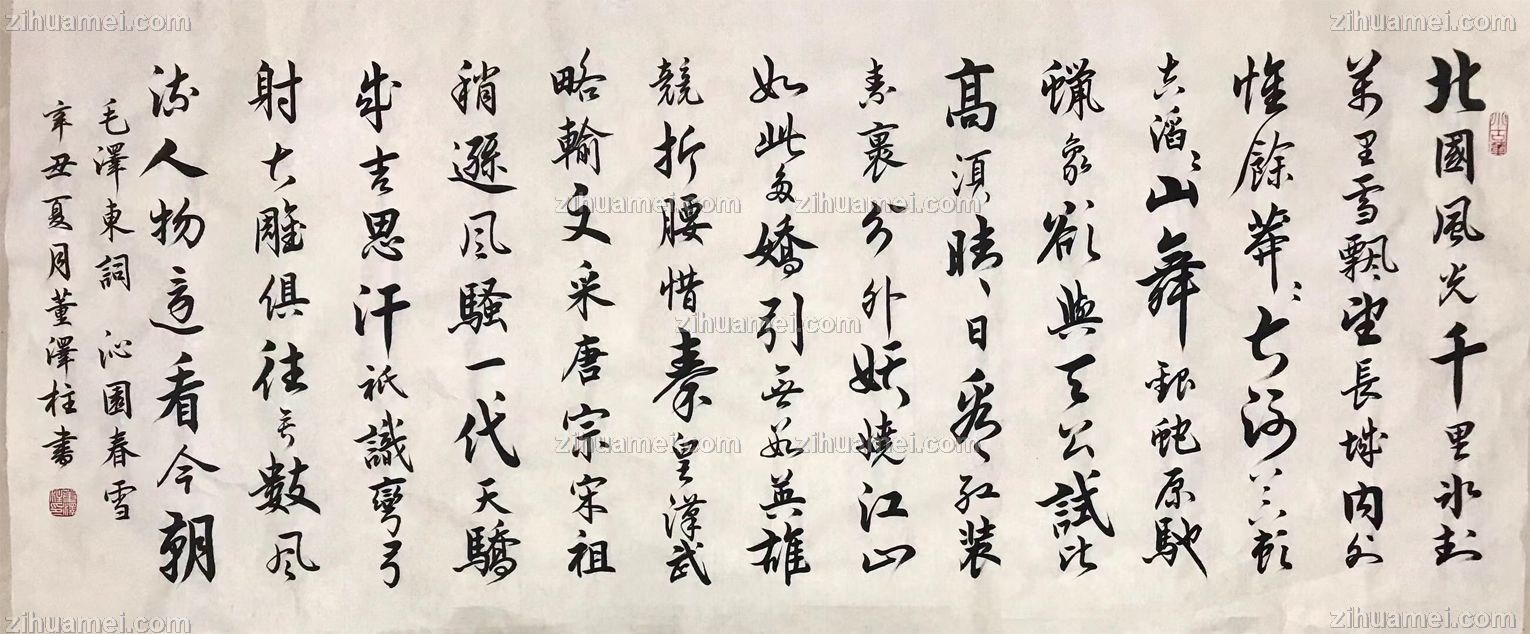 北國風光千里冰封
萬里雪飄望長城内外
惟餘莽〻大河上下頓
失滔〻山舞銀蛇原馳
蠟象欲與天公試比
高須晴日看紅裝
素裹分外妖嬈江山
如此多嬌引無數英雄
競折腰惜秦皇漢武
略輸文采唐宗宋祖
稍遜風騷一代天驕
成吉思汗祇識彎弓
射大雕俱往矣數風
流人物還看今朝
毛澤東詞 沁園春雪
辛丑夏月董澤柱書
zihuamei.com
zihuamei.com
zihuamei.com
zihuamei.com
zihuamei.com
zihuamei.com
zihuamei.com
zihuamei.com
zihuamei.com